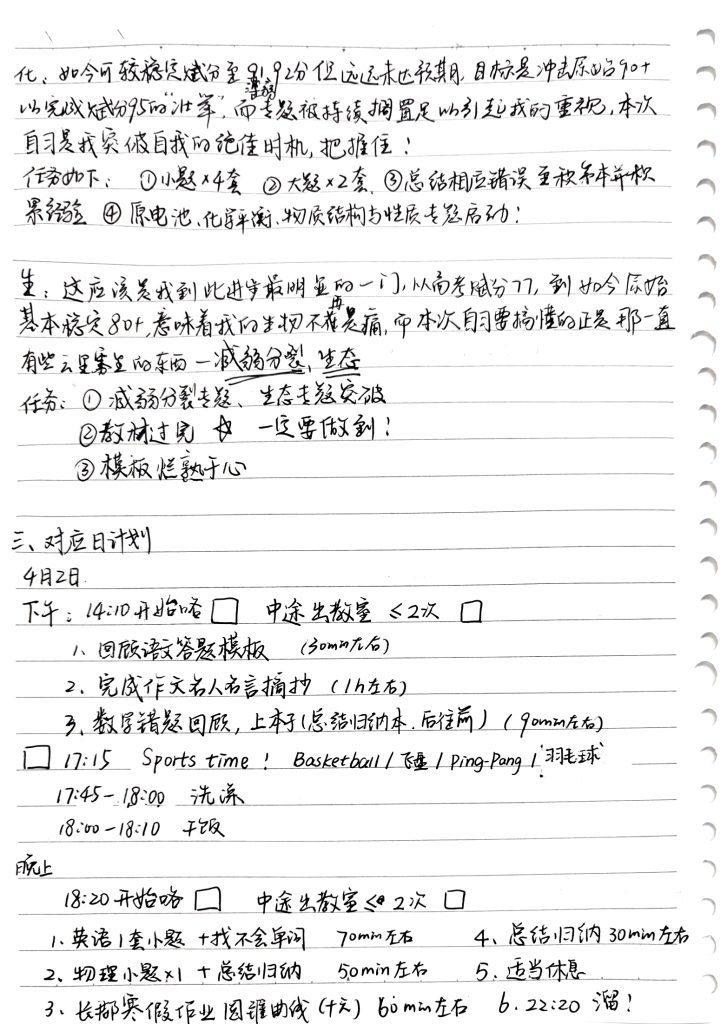 化：如今可较稳定赋分至91,92分但远远未达预期，目标是冲击原始90+
以完成赋分95的"壮举"，而专题被持续搁置足以引起我的重视，本次
自习是我突破自我的绝佳时机，把握住！
任务如下：①小题×4套 ②大题×2套 ③总结相应错误至积累本并积
累经验 ④原电池、化学平衡、物质结构与性质专题启动！
生：这应该是我到此进步最明显的一门，从高考赋分77，到如今原始
基本稳定80+，意味着我的生物不再是痛，而本次自习要搞懂的正是那一直
有些云里雾里的东西—减弱分裂、生态
任务：①减弱分裂专题、生态专题突破
②教材过完 ☆ 一定要做到！
③模板烂熟于心
三、对应日计划
4月2日
下午：14:10开始咯 □ 中途出教室 ≤2次 □
1、回顾语文答题模板 （30min左右）
2、完成作文名人名言摘抄（1h左右）
3、数学错题回顾，上本子（总结归纳本.后往前）（90min左右）
□ 17:15 Sports time！ Basketball / 飞盘 / Ping-Pang / 羽毛球
17:45-18:00 洗澡
18:00-18:10 干饭
晚上
18:20开始咯 □ 中途出教室≤2次 □
1、英语1套小题 +找不会单词 70min左右 4、总结归纳30min左右
2、物理小题×1 + 总结归纳 50min左右 5、适当休息
3、长郡寒假作业圆锥曲线（十六）60min左右 6. 22:20 溜！